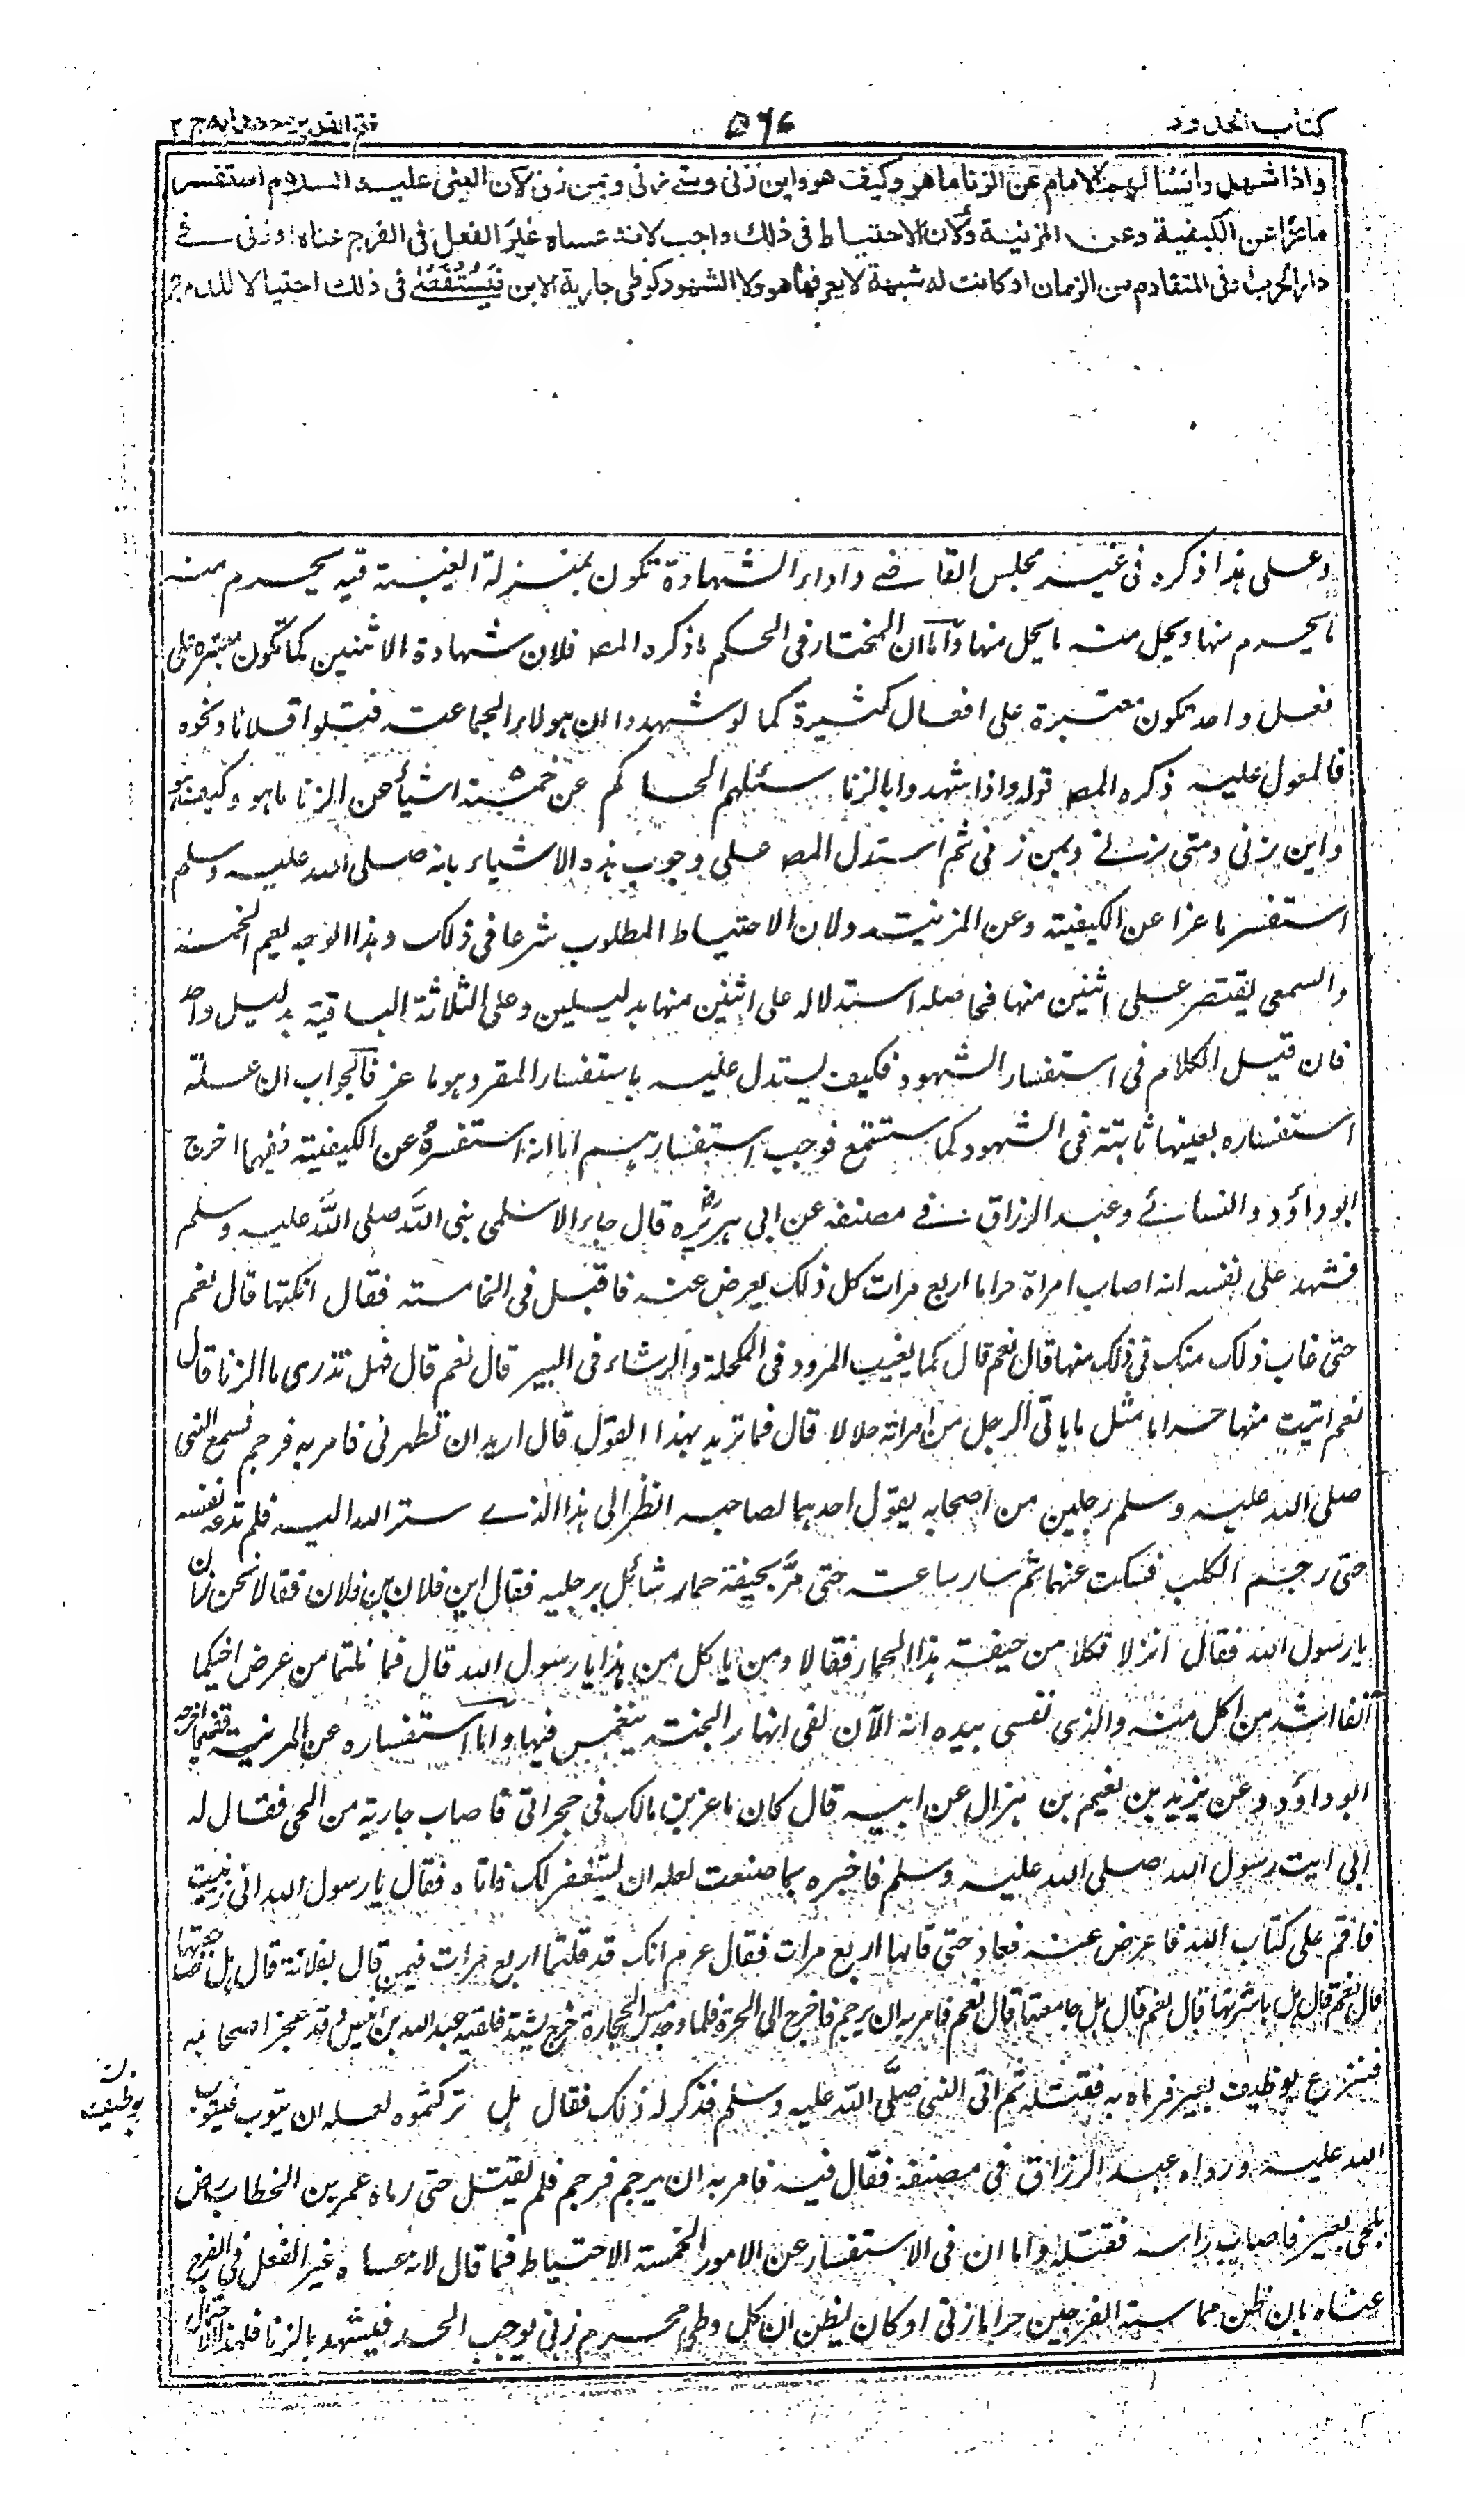 كتاب الحدود
٥٦٤
فتح القدير مع هدايه ج ٢
واذا شهدوا يسألهم الامام عن الزنا ما هو وكيف هو واين زنى ومتى زنى وبمن زنى لان النبى عليه السلام استفسر
ماعزا عن الكيفية وعن المزنية ولان الاحتياط فى ذلك واجب لانه عساه غير الفعل فى الفرج عناه او زنى فے
دار الحرب او فى المتقادم من الزمان او كانت له شبهة لا يعرفها هو ولا الشهود كوطى جارية الابن فيستقصے فى ذلك احتيالا للدرء
وعلى هذا ذكره فى غير مجلس القاضے واداء الشهادة تكون بمنزلة الغيبة فيه يحرم منه
ما يحرم منها ويحل منه ما يحل منها واما ان المختار فى الحكم ما ذكره المص فلان شهادة الاثنين كما تكون معتبرة على
فعل واحد تكون معتبرة على افعال كثيرة كما لو شهدوا ان هولاء الجماعة قتلوا فلانا ونحوه
فالمعول عليه ذكره المص قوله واذا شهدوا بالزنا سئلهم الحاكم عن خمسة اشيأ عن الزنا ما هو وكيف هو
واين زنى ومتى زنے وبمن زنى ثم استدل المص على وجوب هذه الاشياء بانه صلى الله عليه وسلم
استفسر ماعزا عن الكيفية وعن المزنية ولان الاحتياط المطلوب شرعا فى ذلك وهذا الوجه يعم الخمسة
والسمعى يقتصر على اثنين منها فحاصله استدلاله على اثنين منها بدليلين وعلى الثلاثة الباقية بدليل واحد
فان قيل الكلام فى استفسار الشهود فكيف يستدل عليه باستفسار المقر وهو ماعز فالجواب ان علة
استفساره بعينها ثابتة فى الشهود كما ستسمع فوجب استفسارهم اما انه استفسره عن الكيفية ففيما اخرج
ابو داؤد والنسائے وعبد الرزاق فے مصنفه عن ابى هريرة قال جاء الاسلمى نبى الله صلى الله عليه وسلم
فشهد على نفسه انه اصاب امراة حراما اربع مرات كل ذلك يعرض عنه فاقبل فى الخامسة فقال انكتها قال نعم
حتى غاب ذلك منك فى ذلك منها قال نعم قال كما يغيب المرود فى المكحلة والرشاء فى البير قال نعم قال فهل تدرى ما الزنا قال
نعم اتيت منها حراما مثل ما ياتى الرجل من امراته حلالا قال فما تريد بهذا القول قال اريد ان تطهرنى فامر به فرجم فسمع النبى
صلى الله عليه وسلم رجلين من اصحابه يقول احدهما لصاحبه انظر الى هذا الذے ستر الله اليه فلم تدعه نفسه
حتى رجم رجم الكلب فسكت عنهما ثم سار ساعة حتى مرّ بجيفة حمار شائل برجليه فقال اين فلان بن فلان فقالا نحن ذان
يا رسول الله فقال انزلا فكلا من جيفة هذا الحمار فقالا ومن ياكل من هذا يا رسول الله قال فما نلتما من عرض اخيكما
آنفا اشد من اكل منه والذى نفسى بيده انه الآن لفى انهار الجنة ينغمس فيها واما استفساره عن المزنية ففيما اخرجه
ابو داؤد وعن يزيد بن نعيم بن هزال عن ابيه قال كان ماعز بن مالك فى حجراتى فاصاب جارية من الحى فقال له
ابى ايت رسول الله صلى الله عليه وسلم فاخبره بما صنعت لعله ان يستغفر لك فاتاه فقال يا رسول الله انى زنيت
فاقم على كتاب الله فاعرض عنه فعاد حتى قالها اربع مرات فقال عم انك قد قلتها اربع مرات فيمن قال بفلانة قال هل ضاجعتها
قال نعم قال هل باشرتها قال نعم قال هل جامعتها قال نعم فامر به ان يرجم فاخرج الى الحرة فلما وجد مس الحجارة خرج يشتد فلقيه عبد الله بن انيس وقد عجز اصحابه
فنزع بوظيف بعير فرماه به فقتله ثم اتى النبى صلّى الله عليه وسلم فذكر له ذلك فقال هل تركتموه لعله ان يتوب فيتوب
بوظيفة
الله عليه ورواه عبد الرزاق فى مصنفه فقال فيه فامر به ان يرجم فرجم فلم يقتل حتى رماه عمر بن الخطاب رض
بلحى بعير فاصاب راسه فقتله واما ان فى الاستفسار عن الامور الخمسة الاحتياط فما قال لانه عساه غير الفعل فى الفرج
عناه بان ظن مماسة الفرجين حراما زنى او كان يظن ان كل وطى محرم زنى يوجب الحد فيشهد بالزنا فلهذا الاحتمال